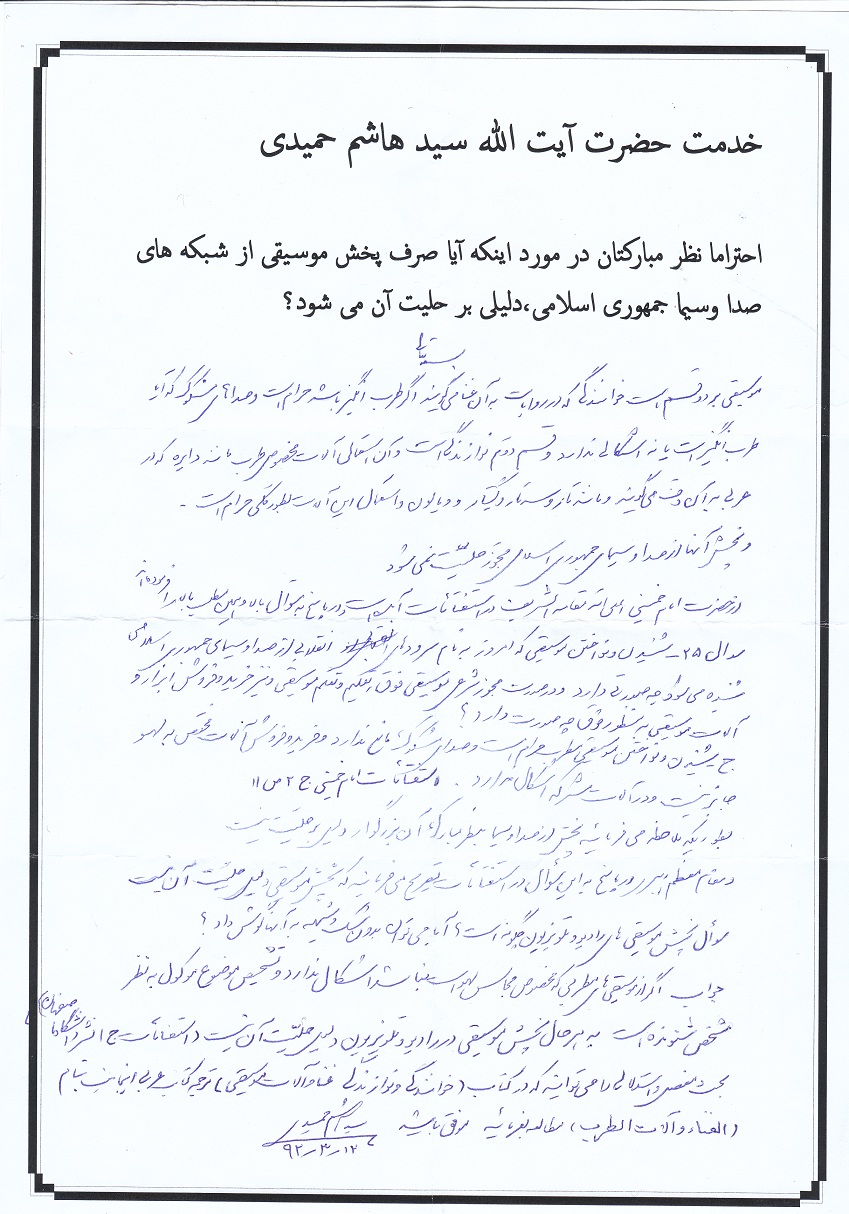 خدمت حضرت آیت الله سید هاشم حمیدی
احتراما نظر مبارکتان در مورد اینکه آیا صرف پخش موسیقی از شبکه های
صدا وسیما جمهوری اسلامی،دلیلی بر حلیت آن می شود؟
بسمه تعالی
موسیقی بر دو قسم است خوانندگی که در روایات به آن غنا می گویند اگر طرب انگیز باشد حرام است و صداهای مشکوک که آیا
طرب انگیز است یا نه اشکالی ندارد و قسم دوم نوازندگی است و آن استعمال آلات مخصوص طرب مانند دایره که در
عربی به آن دف می گویند و مانند تار و سه تار و گیتار و ویالون و استعمال این آلات بطور کلی حرام است -
و پخش آنها از صدا و سیمای جمهوری اسلامی مجوز حلیت نمی شود
از حضرت امام خمینی اعلی الله مقامه الشریف در استفتائات آمده است در پاسخ به سؤال بالا و همین مطلب بالا را فرموده اند
سوال ۲۵ - شنیدن و نواختن موسیقی که امروز به نام سرودهای انقلابی از صدا و سیمای جمهوری اسلامی
شنیده می شود چه صورتی دارد و در صورت مجوز شرعی موسیقی فوق تعلیم و تعلم موسیقی و نیز خرید و فروش ابزار و
آلات موسیقی به منظور فوق چه صورت دارد؟
ج - شنیدن و نواختن موسیقی مطرب حرام است و صداهای مشکوک مانع ندارد و خرید و فروش آلات مختص به لهو
جایز نیست و در آلات مشترکه اشکال ندارد . استفتائات امام خمینی ج ۲ ص ۱۱
بطوریکه ملاحظه می فرمائید پخش از صدا و سیما بنظر مبارک آن بزرگوار دلیل بر حلیت نیست
و مقام معظم رهبری در پاسخ به این سؤال در استفتائات تصریح می فرمایند که پخش موسیقی دلیل حلیت آن نیست
سؤال پخش موسیقی های رادیو و تلویزیون چگونه است؟ آیا می توان بدون شک و شبهه به آنها گوش داد؟
جواب اگر از موسیقی های مطربی که مخصوص مجالس لهو است نباشد اشکال ندارد و تشخیص موضوع موکول به نظر
شخص شنونده است به هر حال پخش موسیقی در رادیو و تلویزیون دلیل حلیت آن نیست (استفتائات ج ۱ نشر دانشگاه اصفهان)
بحث مفصل و استدلالی را می توانید که در کتاب (خوانندگی و نوازندگی غنا و آلات موسیقی) ترجمه کتاب عربی اینجانب بنام
(الغناء و آلات الطرب) مطالعه بفرمائید موفق باشید سید هاشم حمیدی
۹۲/۳/۱۲